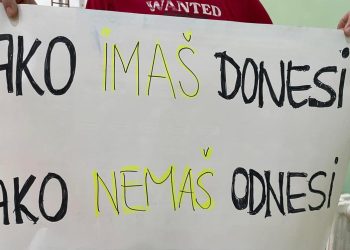 WANTED
AKO IMAŠ DONESI
AKO NEMAŠ ODNESI